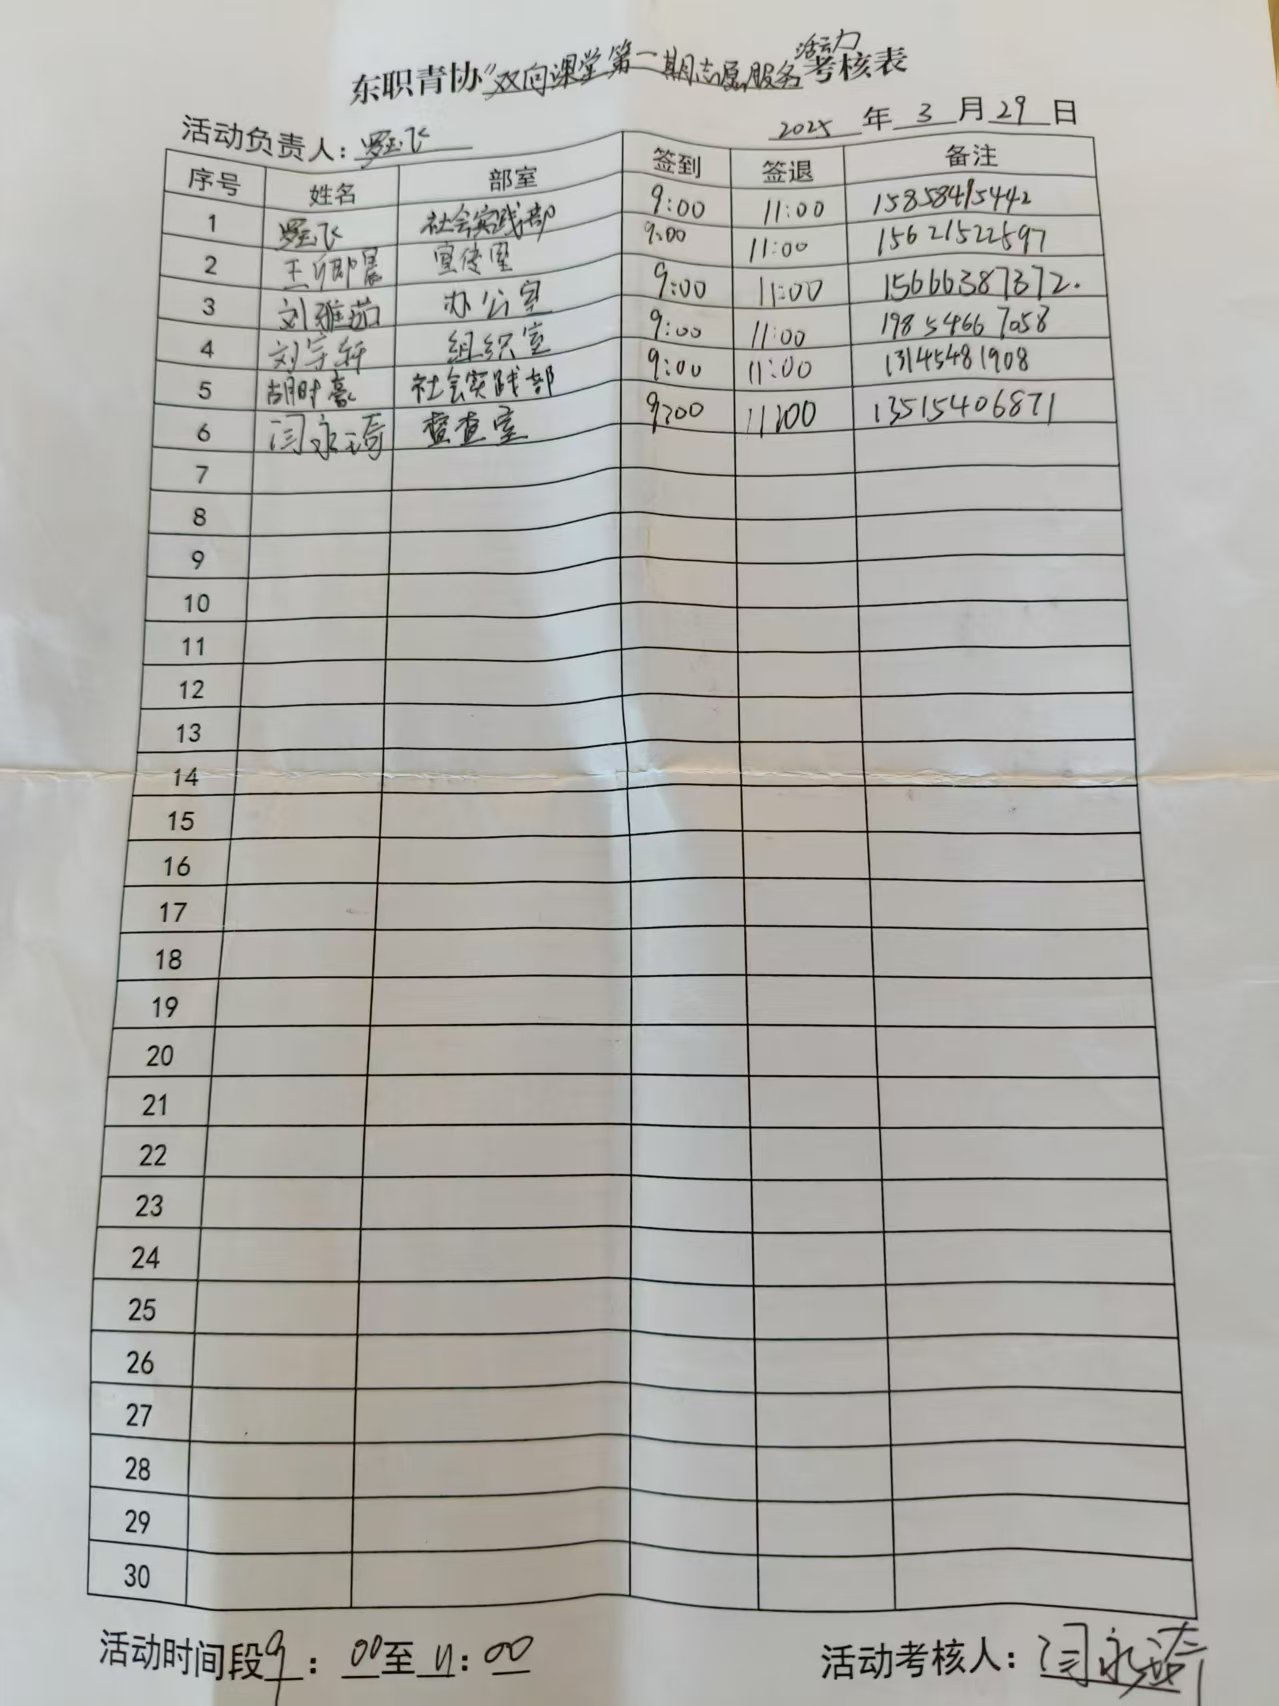 东职青协“双向课堂第一期志愿服务活动考核表
活动负责人：罗玉飞 2025年3月29日
序号 姓名 部室 签到 签退 备注
1 罗玉飞 社会实践部 9:00 11:00 15858495442
2 王卿晨 宣传室 9:00 11:00 15621522597
3 刘雅茹 办公室 9:00 11:00 15666387372.
4 刘宇轩 组织室 9:00 11:00 19854667058
5 胡时豪 社会实践部 9:00 11:00 13145481908
6 闫永琦 督查室 9:00 11:00 13515406871
7
8
9
10
11
12
13
14
15
16
17
18
19
20
21
22
23
24
25
26
27
28
29
30
活动时间段9：00至11：00 活动考核人：闫永琦